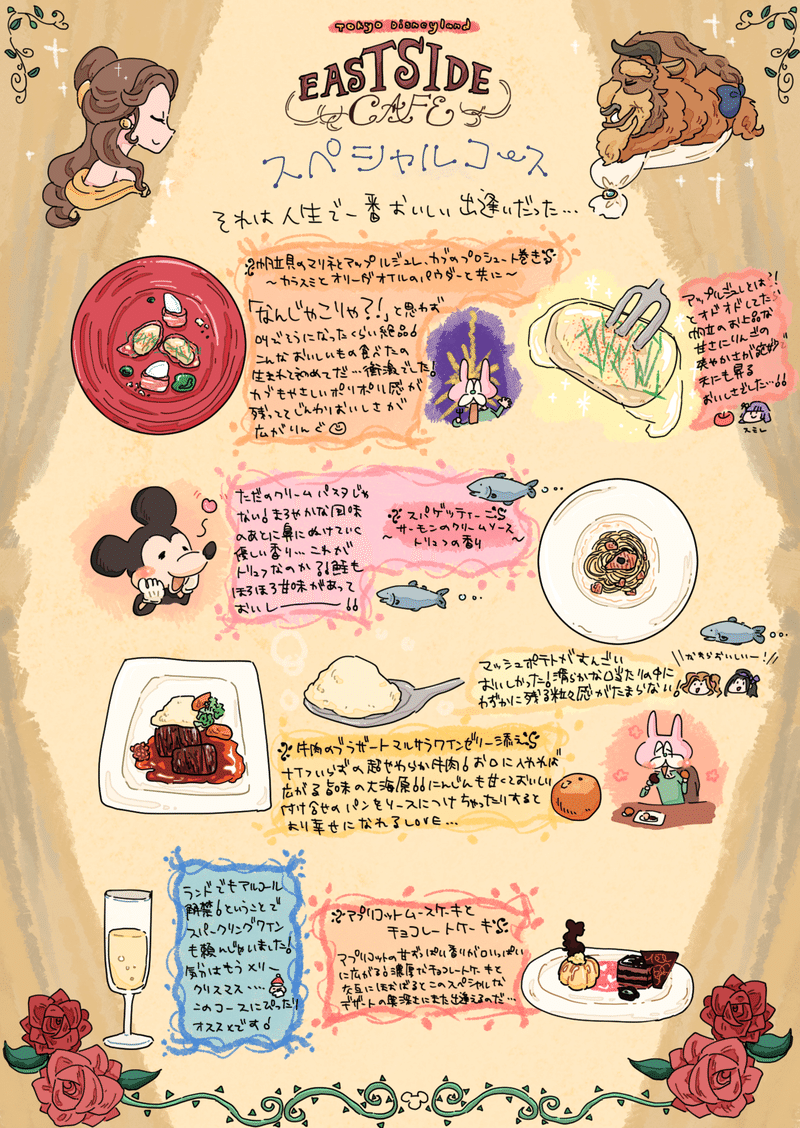 Tokyo Disneyland
EASTSIDE
CAFE
スペシャルコース
それは人生で一番おいしい出逢いだった…
帆立貝のマリネとアップルジュレ、カブのプロシュート巻き
～カラスミとオリーブオイルのパウダーと共に～
「なんじゃこりゃ？！」と思わず
叫びそうになったくらい絶品！
こんなおいしいもの食べたの
生まれて初めてだ…衝激でした！
カブもやさしいポリポリ感が
残っててじんわりおいしさが
広がりんぐ
アップルジュレとは？！
とオドオドしてたら
帆立のお上品な
甘さにりんごの
爽やかさが絶妙
天にも昇る
おいしさでした…!!
スミレ
ただのクリームパスタじゃ
ない！まろやかな風味
のあとに鼻にぬけていく
優しい香り…これが
トリュフなのか？！鮭も
ほろほろ甘味があって
おいしーーー!!
スパゲッティーニ
サーモンのクリームソース
～トリュフの香り～
マッシュポテトがすんごい
おいしかった！滑らかな口当たりの中に
わずかに残る粒々感がたまらない！
だからおいしいー！
牛肉のブラザート マルサラワインゼリー添え
ナイフいらずの超やわらか牛肉！お口に入れれば
広がる旨味の大海原!!にんじんも甘くておいしい
付け合せのパンをソースにつけちゃったりすると
より幸せになれるLOVE…
ランドでもアルコール
解禁！ということで
スパークリングワイン
も頼んじゃいました！
気分はもうメリー
クリスマス…
このコースにぴったり
オススメです！
アプリコットムースケーキと
チョコレートケーキ
アプリコットの甘ずっぱい香りが口いっぱい
に広がる！濃厚なチョコレートケーキと
交互にほおばるとこのスペシャルな
デザートの奥深さにまた出逢えるのだ…